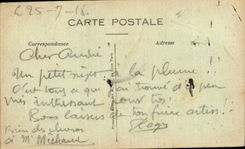 L 25-7-16.
CARTE POSTALE
Correspondance
Adresse
Cher André
Un petit négro à la plume !!
C'est tous ce que j'ai trouvé d'un peu
très intéressant pour toi!
Bons baisers de ton frère
Roger
Bien des choses
à Mr Michaud